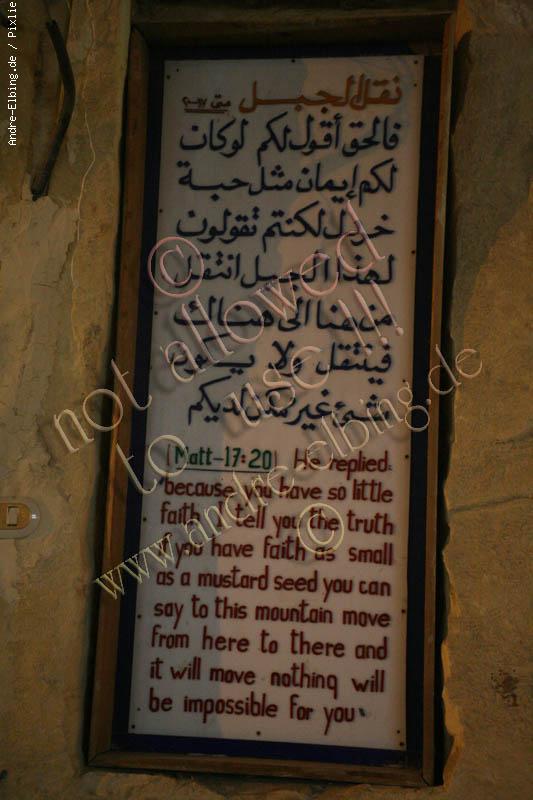 نقل الجبل متى ١٧-٢٠
فالحق أقول لكم لو كان
لكم إيمان مثل حبة
خردل لكنتم تقولون
لهذا الجبل انتقل
من هنا الى هناك
فينتقل ولا يكون
شئ غير ممكن لديكم
(Matt-17:20) He replied
because you have so little
faith I tell you the truth
if you have faith as small
as a mustard seed you can
say to this mountain move
from here to there and
it will move nothing will
be impossible for you
© not allowed
to use !!!
www.andre-elbing.de ©
Andre-Elbing.de / Pixlie